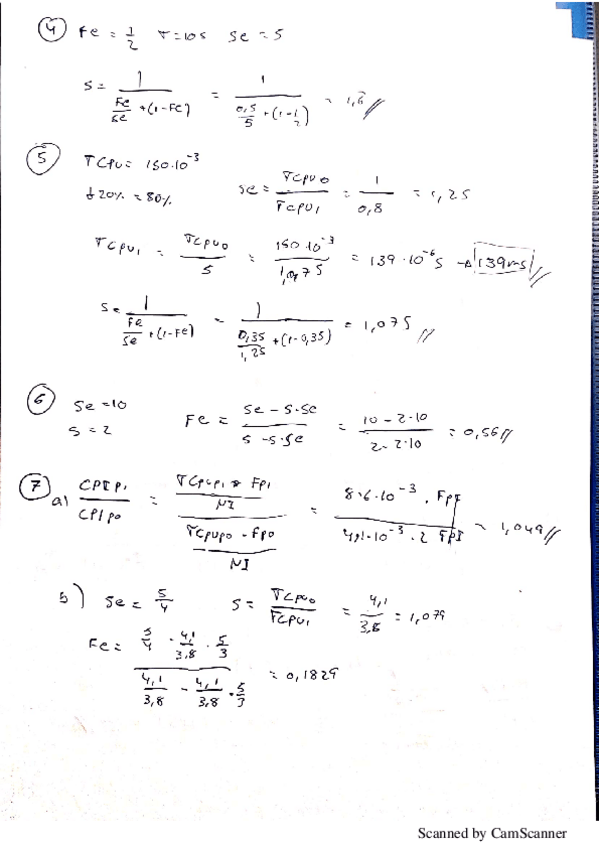 ④ Fe = 1/2 T=10s Se = 5
S = 1 / (Fe/Se + (1-Fe)) = 1 / (0,5/5 + (1-1/2)) = 1,6 //
⑤ TCPU = 150·10^-3
↓20% = 80% Se = TCPU0 / TCPU1 = 1 / 0,8 = 1,25
TCPU1 = TCPU0 / S = 150·10^-3 / 1,075 = 139·10^-6 s → 139ms //
S = 1 / (Fe/Se + (1-Fe)) = 1 / (0,35/1,25 + (1-0,35)) = 1,075 //
⑥ Se = 10
S = 2 Fe = (Se - S·Se) / (S - S·Se) = (10 - 2·10) / (2 - 2·10) = 0,56 //
⑦ a) CPI P1 / CPI P0 = (TCPUP1 · FP1 / NI) / (TCPUP0 · FP0 / NI) = 8,6·10^-3 · FP1 / 4,1·10^-3 · 2 FP1 = 1,049 //
b) Se = 5/4 S = TCPU0 / TCPU1 = 4,1 / 3,8 = 1,079
Fe = (5/4 - 4,1/3,8 · 5/3) / (4,1/3,8 - 4,1/3,8 · 5/3) = 0,1829
Scanned by CamScanner